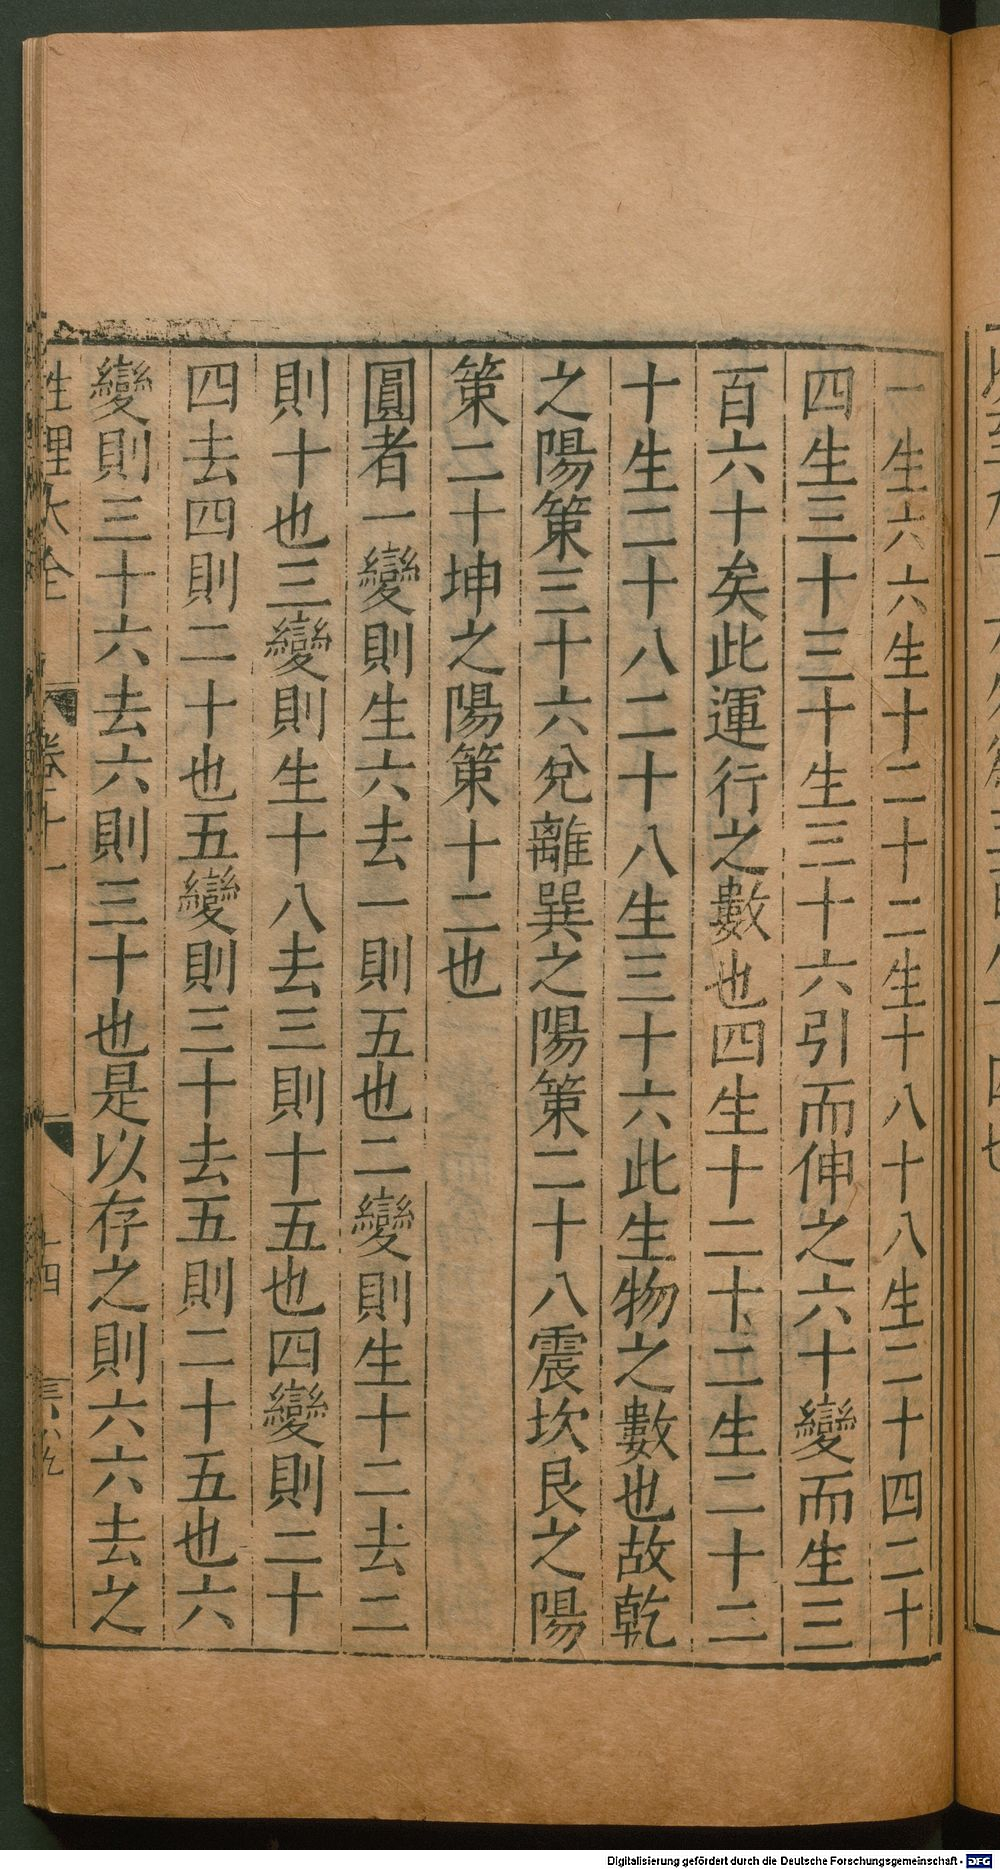 一生六六生十二十二生十八十八生二十四二十
四生三十三十生三十六引而伸之六十變而生三
百六十矣此運行之數也四生十二十二生二十二
十生二十八二十八生三十六此生物之數也故乾
之陽策三十六兌離巽之陽策二十八震坎艮之陽
策二十坤之陽策十二也
圓者一變則生六去一則五也二變則生十二去二
則十也三變則生十八去三則十五也四變則二十
四去四則二十也五變則三十去五則二十五也六
變則三十六去六則三十也是以存之則六六去之
性理大全 卷十一 十四
Digitalisierung gefördert durch die Deutsche Forschungsgemeinschaft - DFG